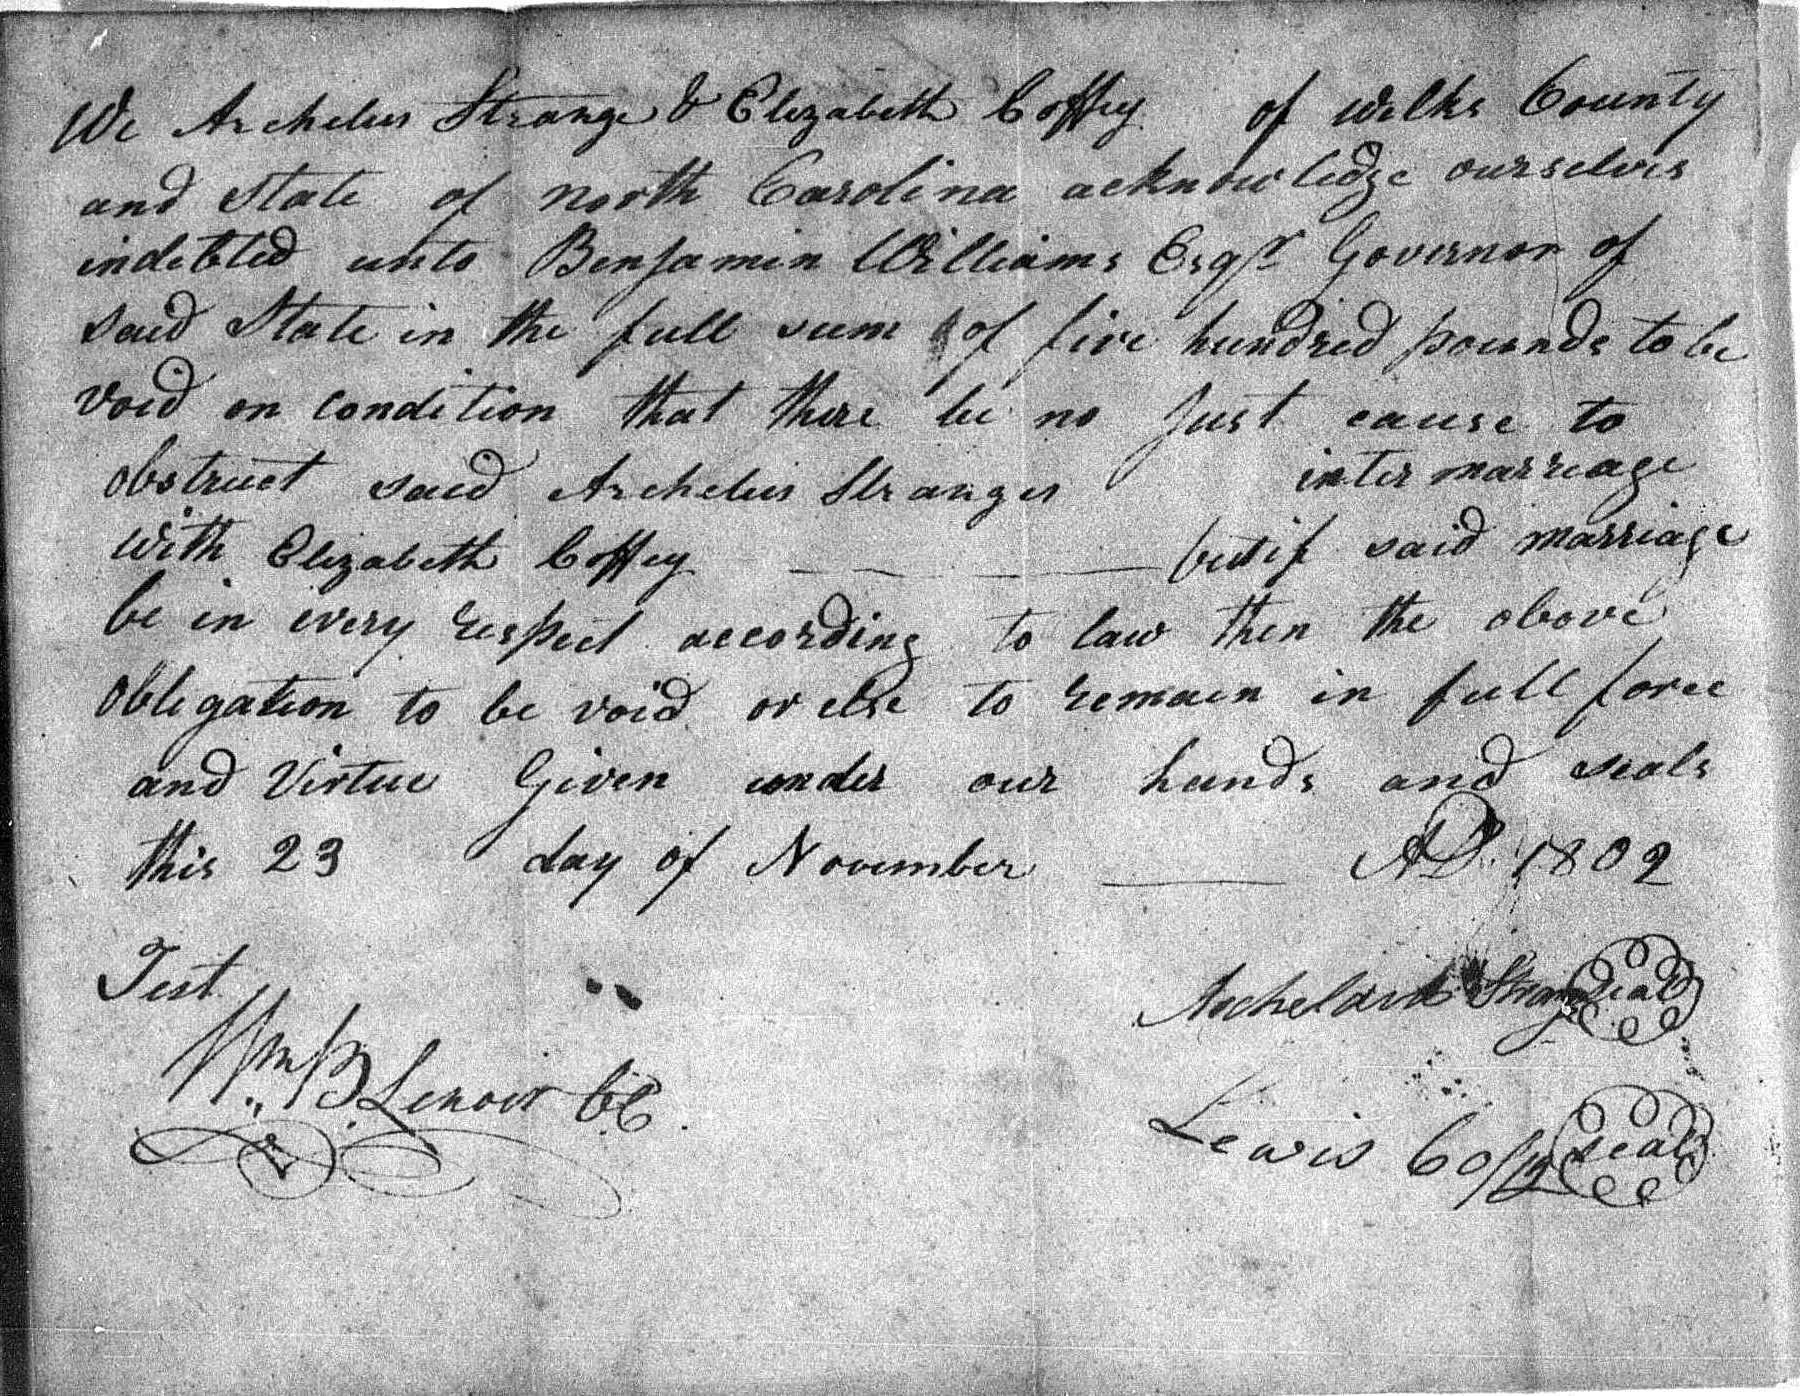 We Archelus Strange & Elizabeth Coffey of Wilks County
and State of North Carolina acknowledge ourselves
indebted unto Benjamin Williams Esqr Governor of
said State in the full sum of five hundred pounds to be
void on condition that there be no Just cause to
obstruct said Archelus Stranges intermarriage
with Elizabeth Coffey but if said marriage
be in every respect according to law then the above
obligation to be void or else to remain in full force
and Virtue Given under our hands and seals
this 23 day of November AD. 1802
Test
Strange seal
Wm. B. Lenoir C.C.
Lewis Coffey seal